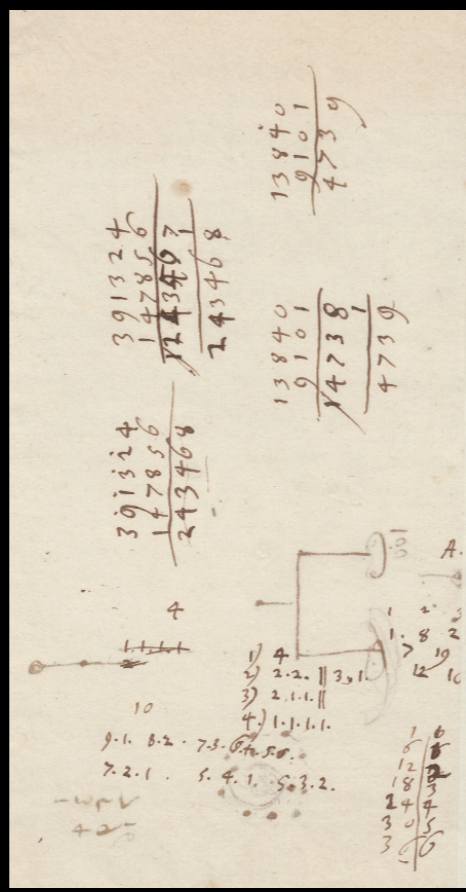 13840
9101
4739
391324
147856
1243467
1
243468
13840
9101
14738
1
4739
391324
147856
243468
A.
4
1 2
1. 8 2
7 19
12
1) 4
2) 2.2. || 3.1.
3) 2.1.1. ||
4.) 1.1.1.1.
10
9.1. 8.2. 7.3. 6.4. 5.5.
7.2.1. 5.4.1. 5.3.2.
1 6
6
12
18 3
24 4
30 5
36 6